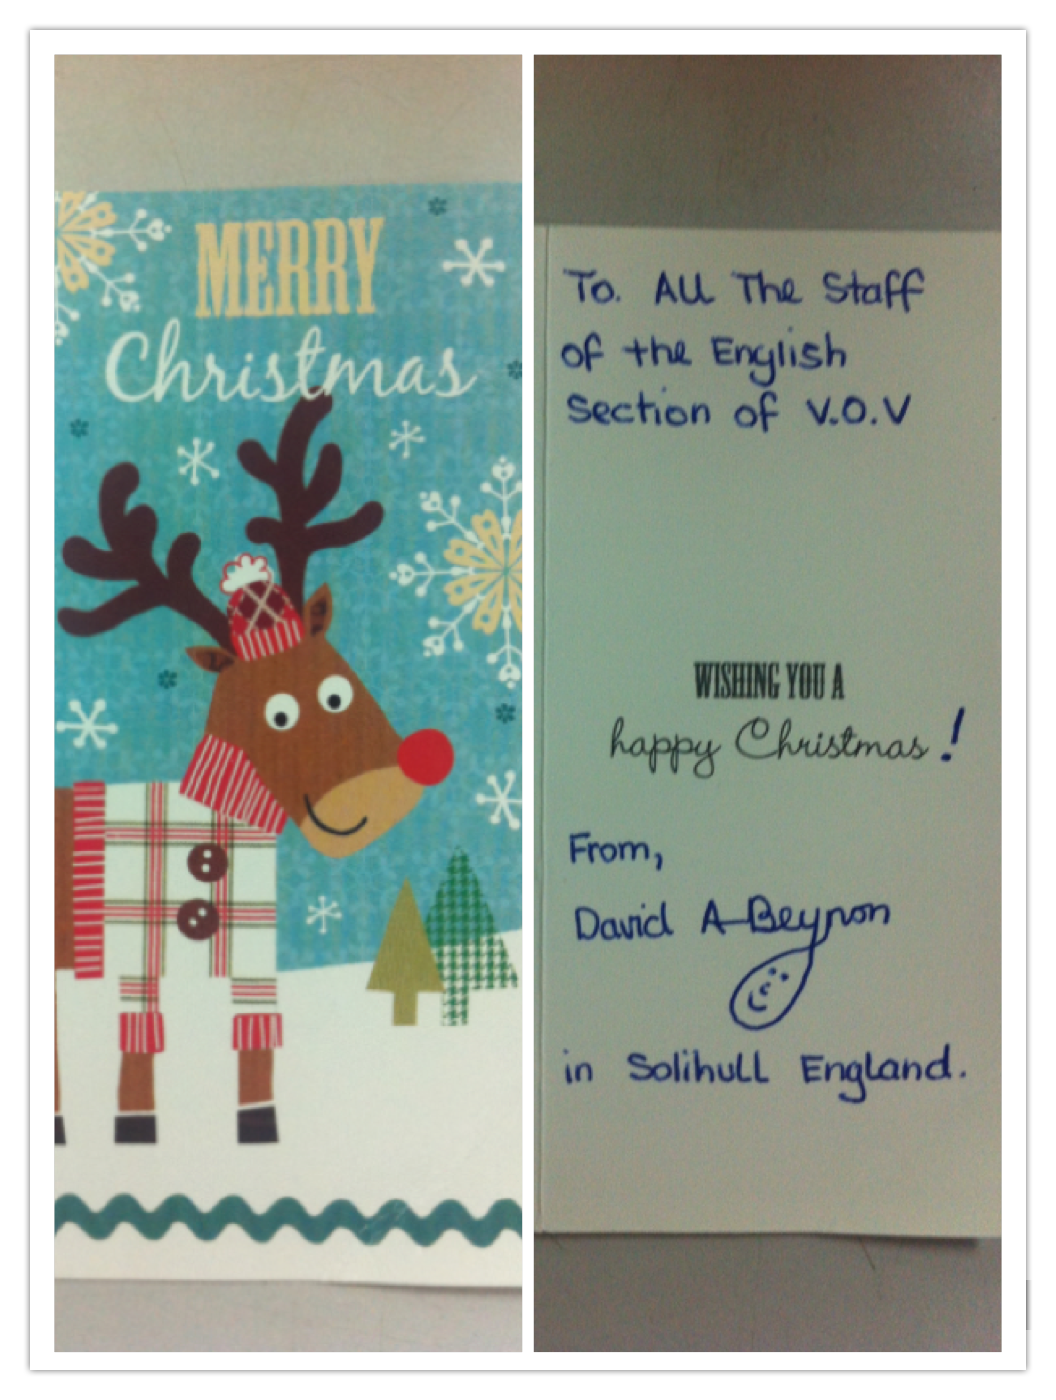 MERRY
Christmas
To. All The Staff
of the English
Section of V.O.V
WISHING YOU A
happy Christmas!
From,
David A Beynon
in Solihull England.